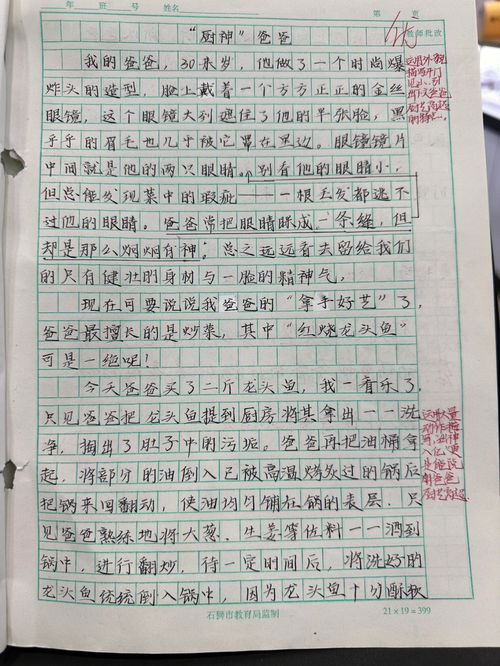 年 班 号 姓名 第 页
优
教师批改
“厨神”爸爸
我的爸爸，30来岁，他做了一个时尚爆
炸头的造型，脸上戴着一个方方正正的金丝
眼镜，这个眼镜大到遮住了他的半张脸，黑
乎乎的眉毛也几乎被它罩在里边。眼镜镜片
中间就是他的两只眼睛。别看他的眼睛小，
但总能发现菜中的瑕疵——一根毛发都逃不
过他的眼睛。爸爸常把眼睛眯成一条缝，但
却是那么炯炯有神。总之远远看去留给我们
的只有健壮的身材与一脸的精神气，
现在可要说说我爸爸的“拿手好艺”了，
爸爸最擅长的是炒菜，其中“红烧龙头鱼”
可是一绝呢！
今天爸爸买了二斤龙头鱼，我一看乐了，
只见爸爸把龙头鱼提到厨房将其拿出一一洗
净，掏出了肚子中的污垢。爸爸再把油桶拿
起，将部分的油倒入已被高温烤炙过的锅后
把锅来回翻动，使油均匀铺在锅的表层。只
见爸爸熟练地将大葱、生姜等佐料一一洒到
锅中，进行翻炒，待一定时间后，将洗好的
龙头鱼统统倒入锅中，因为龙头鱼十分酥软
石狮市教育局监制
21×19=399